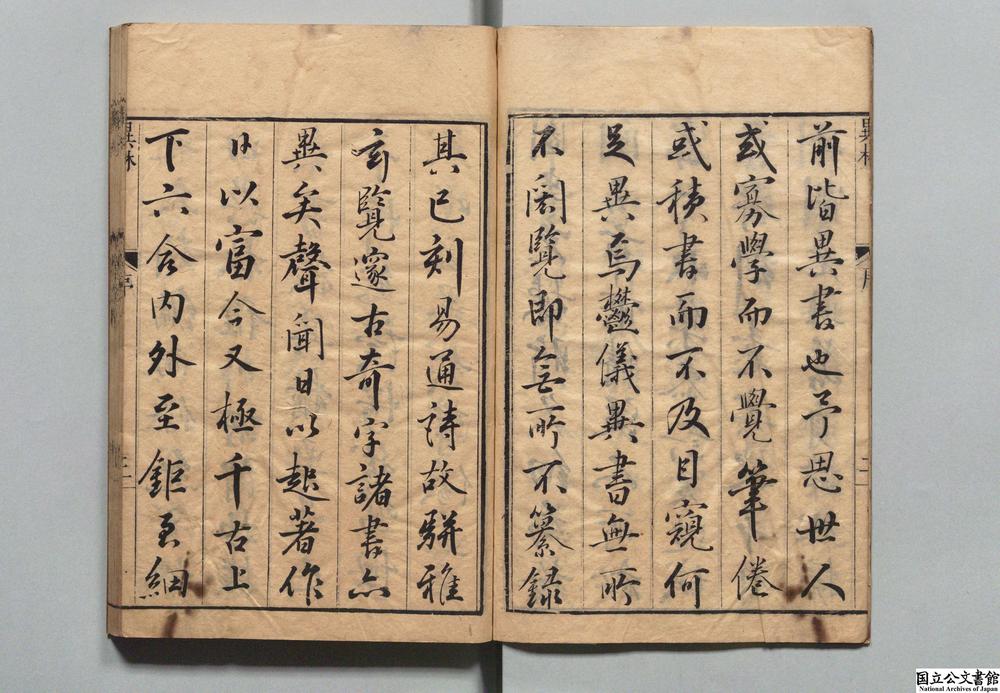 前皆異書也予思世人
或寡學而不覺筆倦
或積書而不及目窺何
足異焉鬱儀異書無所
不閱覽即無所不纂錄
其已刻易通詩故駢雅
玄覽邃古奇字諸書亦
異矣聲聞日以起著作
日以富今又極千古上
下六合內外至鉅至細
異林
序
二
異林
序
三
国立公文書館
National Archives of Japan